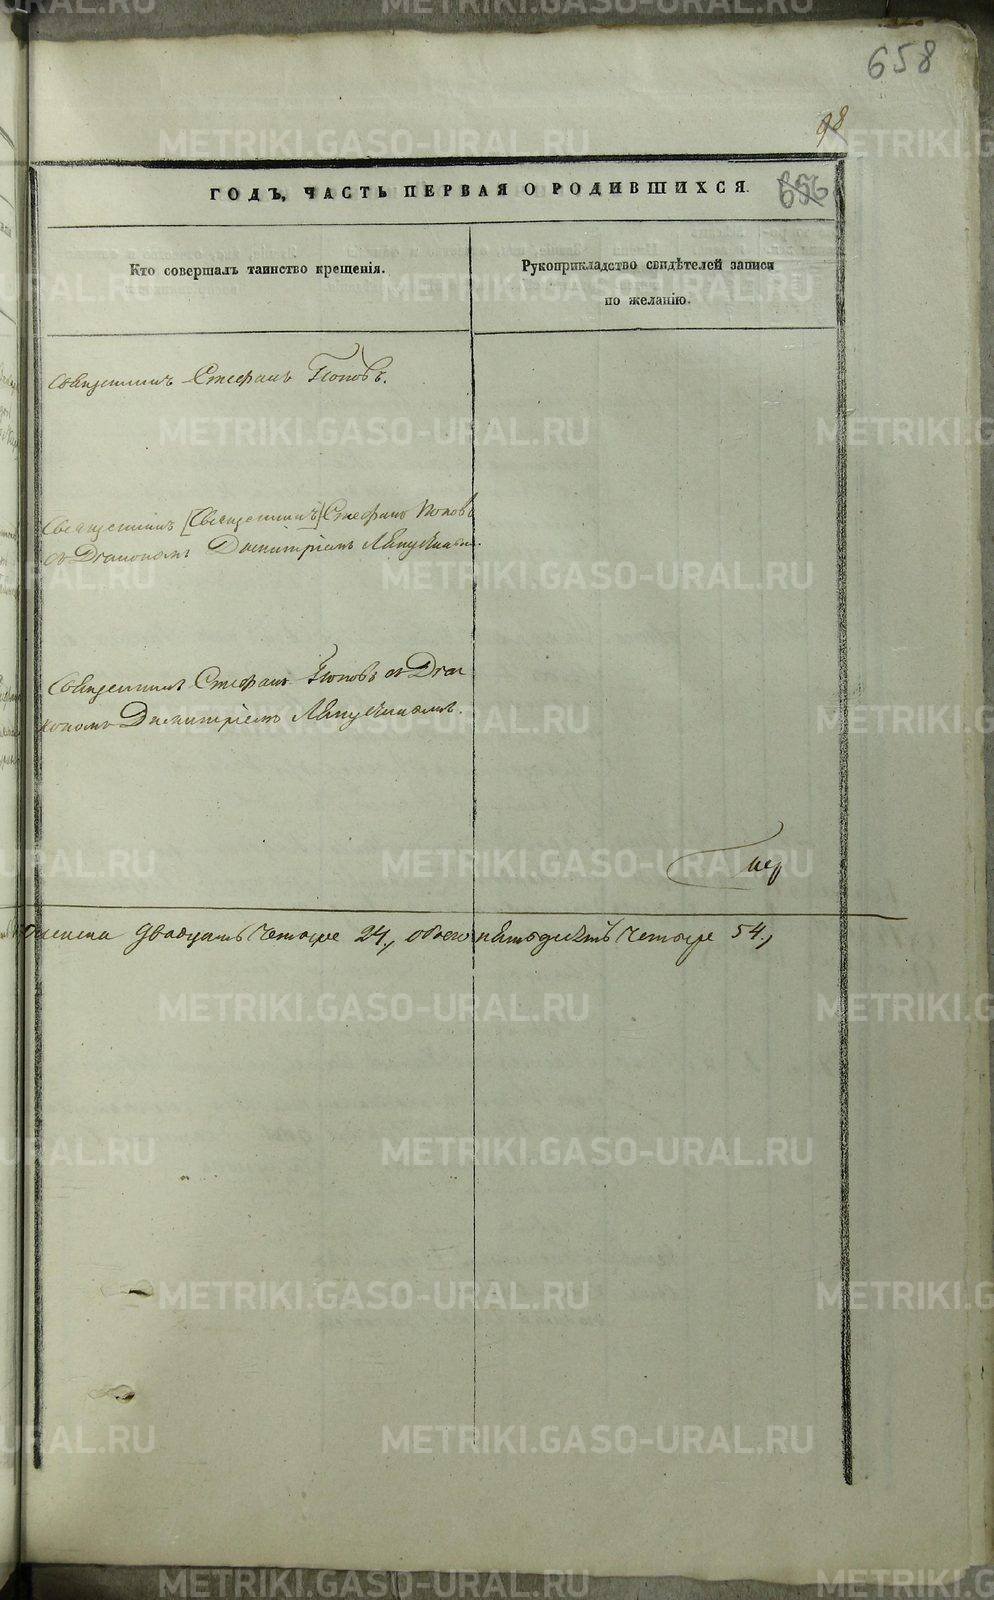 658
98
656
ГОДЪ, ЧАСТЬ ПЕРВАЯ О РОДИВШИХСЯ.
Кто совершалъ таинство крещенія.
Рукоприкладство свидѣтелей записи
по желанію.
Священникъ Стефанъ Поповъ.
Священникъ [Священникъ] Стефанъ Поповъ
съ Діакономъ Димитріемъ
Священникъ Стефанъ Поповъ съ Діа
кономъ Димитріемъ
двадцать четыре 24., обоего пятьдесятъ четыре 54.,
METRIKI.GASO-URAL.RU